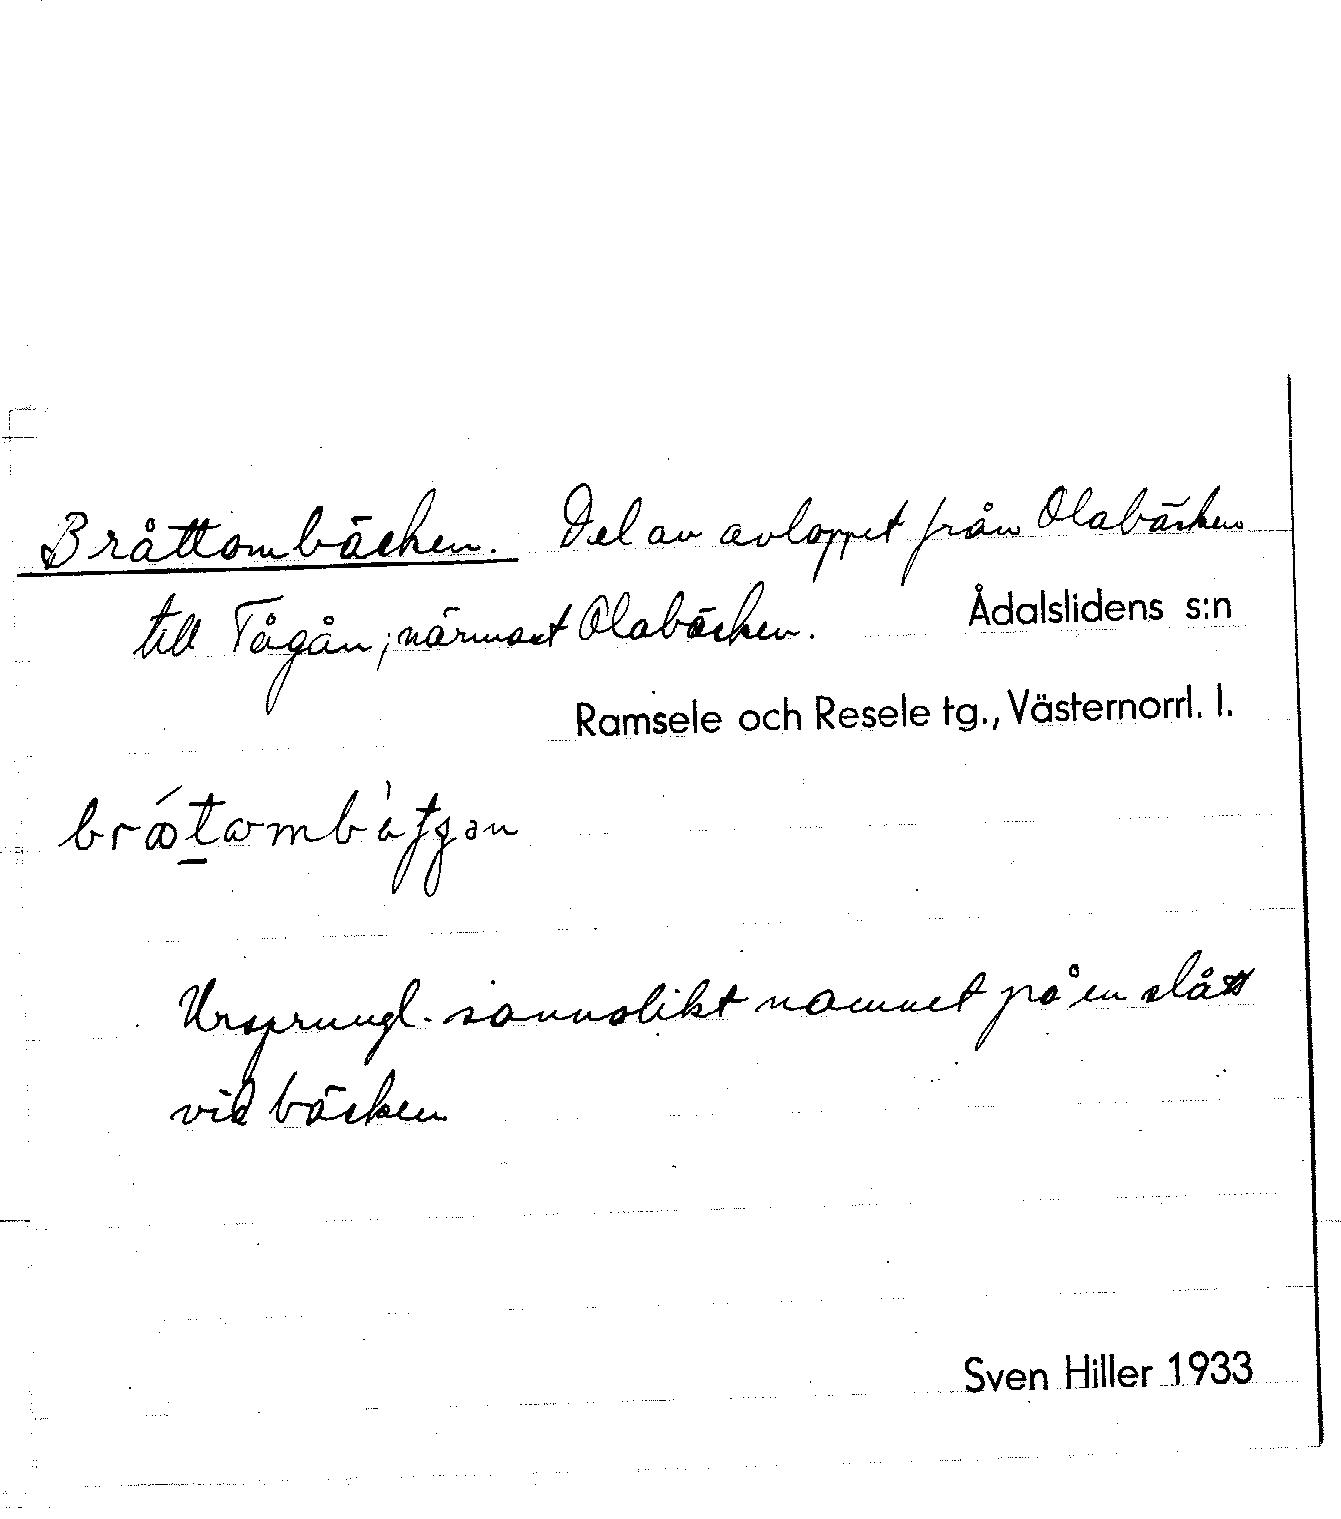 Bråttombäcken. Del av avloppet från Olabäcken
till Tågån, närmast Olabäcken.
Ådalslidens s:n
Ramsele och Resele tg., Västernorrl. l.
Ursprungl. sannolikt namnet på en slått
vid bäcken
Sven Hiller 1933